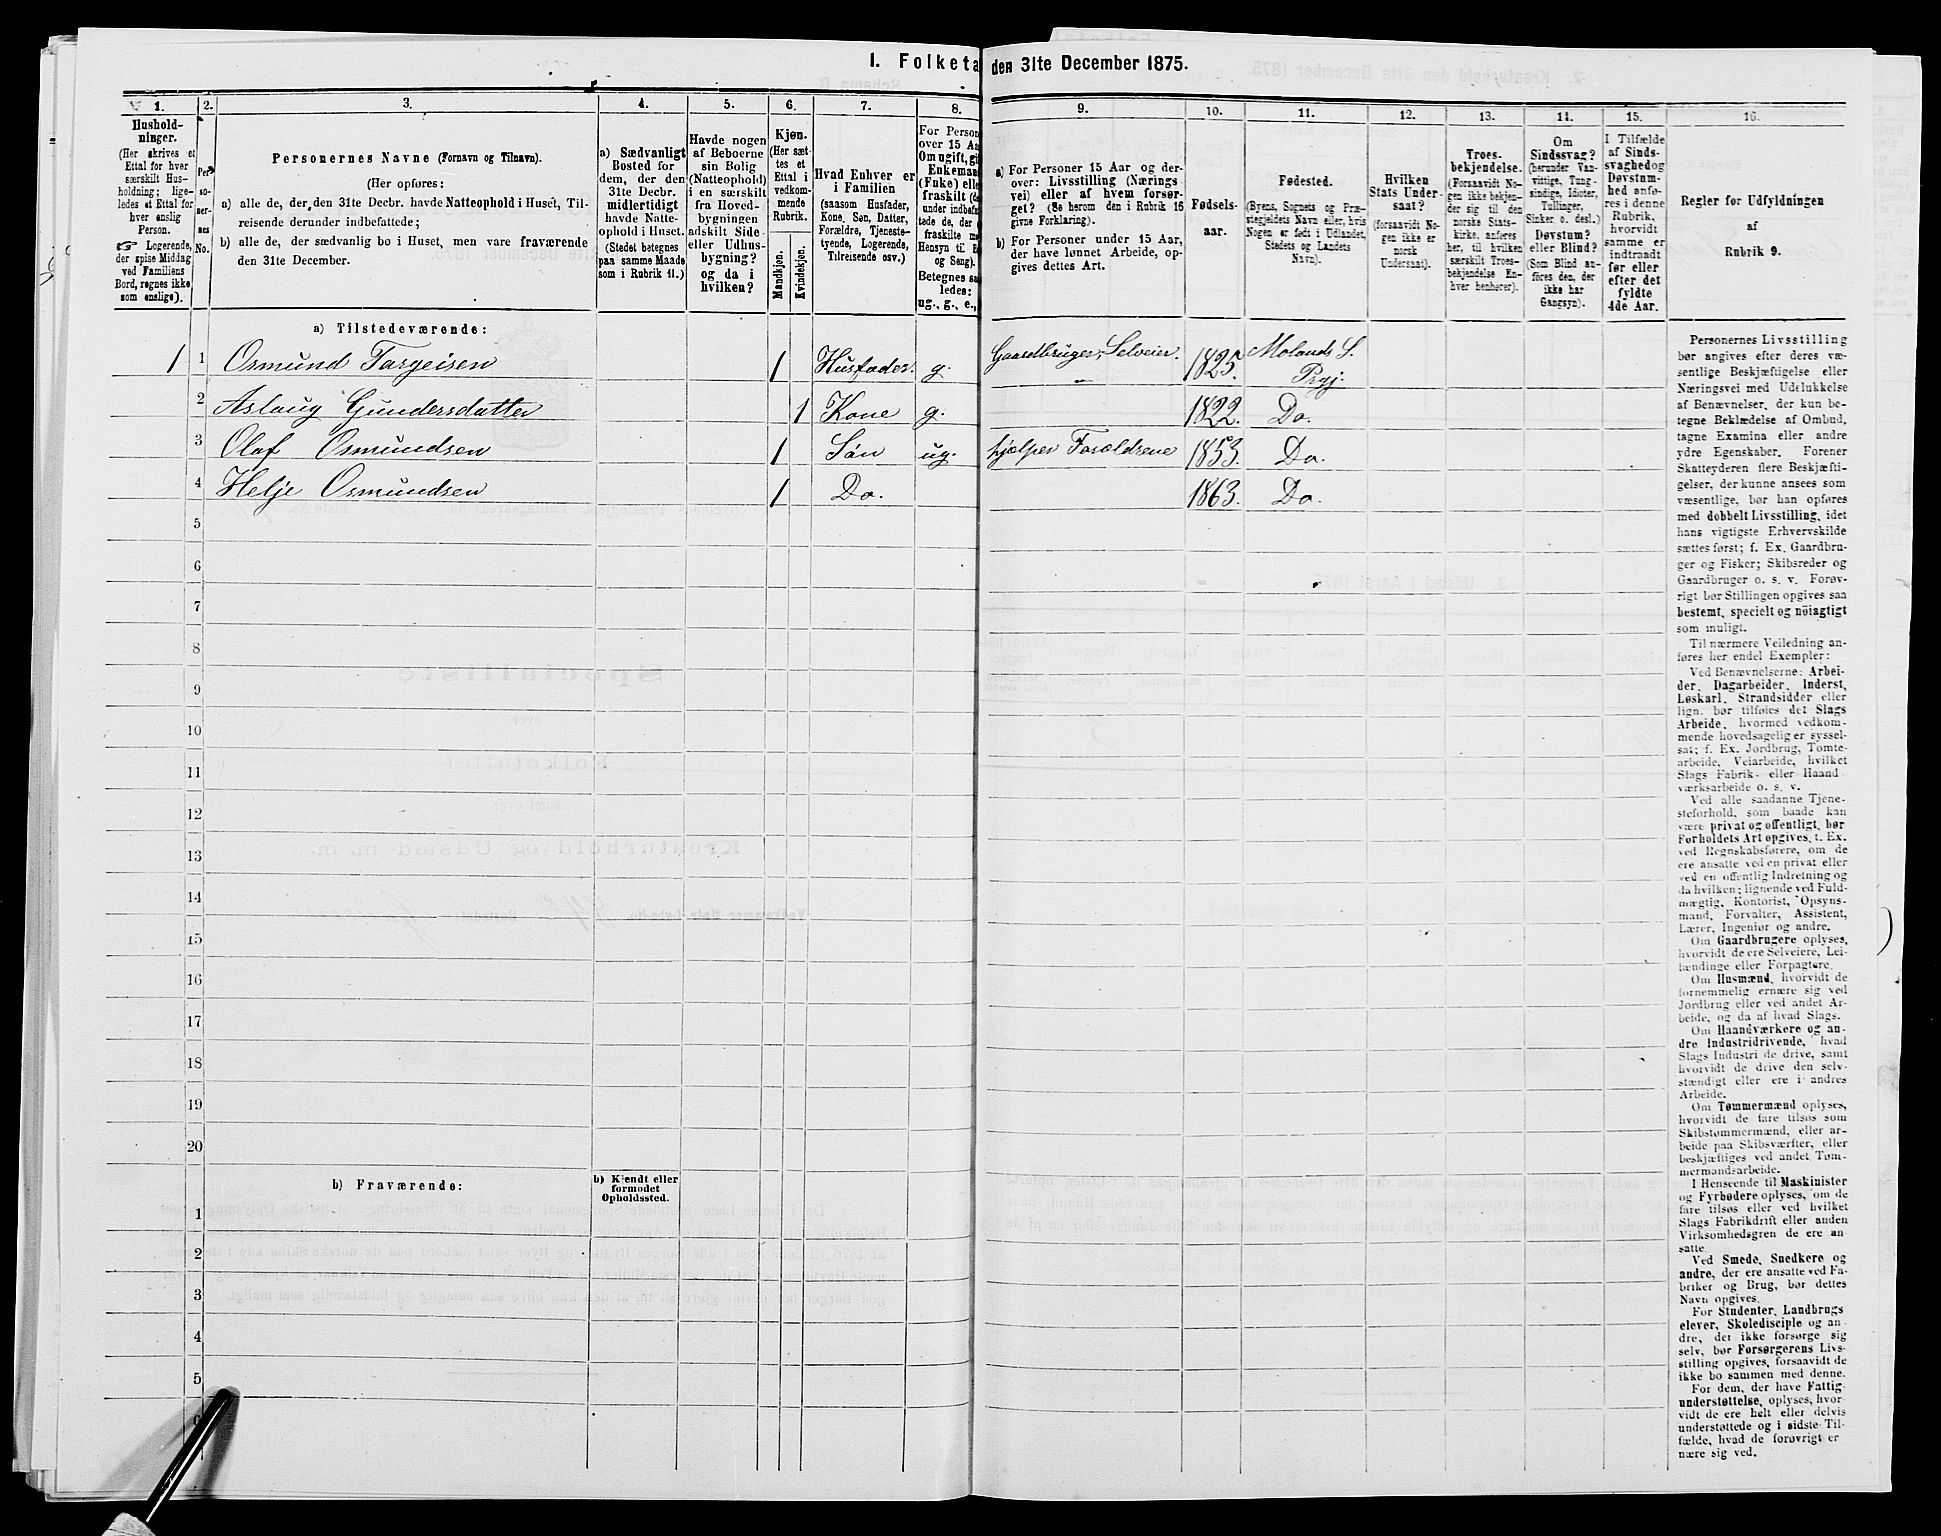 I. Folketa
den 31te December 1875.
1.
2.
3.
4.
5.
6.
7.
8.
9.
10.
11.
12.
13.
14.
15.
16.
Hushold-
ninger.
(Her skrives et
Ettal for hver
særskilt Hus-
holdning; lige-
ledes et Ettal for
hver enslig
Person.
☞ Logerende,
der spise Middag
ved Familiens
Bord, regnes ikke
som enslige).
Per-
so-
ner-
nes
No.
Personernes Navne (Fornavn og Tilnavn).
(Her opføres:
a) alle de, der den 31te Decbr. havde Natteophold i Huset, Til-
reisende derunder indbefattede;
b) alle de, der sædvanlig bo i Huset, men vare fraværende
den 31te December.
a) Sædvanligt
Bosted for
dem, der den
31te Decbr.
midlertidigt
havde Natte-
ophold i Huset.
(Stedet betegnes
paa samme Maade
som i Rubrik 11.)
Havde nogen
af Beboerne
sin Bolig
(Natteophold)
i en særskilt
fra Hoved-
bygningen
adskilt Side-
eller Udhus-
bygning?
og da i
hvilken?
Kjøn.
(Her sæt-
tes et
Ettal i
vedkom-
mende
Rubrik.
Mandkjøn.
Kvindekjøn.
Hvad Enhver er
i Familien
(saasom Husfader,
Kone, Søn, Datter,
Forældre, Tjeneste-
tyende, Logerende,
Tilreisende osv.)
For Person
over 15 Aa
Om ugift, gi
Enkemand
(Enke) elle
fraskilt (de
under indbefa
tede de, der e
fraskilte m
Hensyn til B
og Seng).
Betegnes saa
ledes:
ug., g., e.,
a) For Personer 15 Aar og der-
over: Livsstilling (Nærings-
vei) eller af hvem forsør-
get? (Se herom den i Rubrik 16
givne Forklaring).
b) For Personer under 15 Aar,
der have lønnet Arbeide, op-
gives dettes Art.
Fødsels-
aar.
Fødested.
(Byens, Sognets og Præ-
stegjeldets Navn eller, hvis
Nogen er født i Udlandet,
Stedets og Landets
Navn).
Hvilken
Stats Under-
saat?
(forsaavidt No-
gen ikke er
norsk
Undersaat).
Troes-
bekjendelse.
(Forsaavidt No-
gen ikke bekjen-
der sig til den
norske Stats-
kirke, anføres
her, til hvilken
særskilt Troes-
bekjendelse En-
hver henhører).
Om
Sindssvag?
(herunder Van-
vittige, Tung-
sindige, Idioter,
Tullinger,
Sinker o. desl.)
Døvstum?
eller Blind?
(Som Blind an-
føres den, der
ikke har
Gangsyn).
I Tilfælde
af Sinds-
svaghed og
Døvstum-
hed anfø-
res i denne
Rubrik,
hvorvidt
samme er
indtraadt
før eller
efter det
fyldte
4de Aar.
Regler for Udfyldningen
af
Rubrik 9.
a) Tilstedeværende:
1 1 Osmund Targeisen 1 Husfader. g. Gaardbruger, Selveier. 1825. Molands S.
Prgj.
2 Aslaug Gundersdatter 1 Kone g. 1822. Do.
3 Olaf Osmundsen 1 Søn ug. hjælper Forældrene 1853. Do.
4 Helje Osmundsen 1 Do. 1863. Do.
5
6
7
8
9
10
11
12
13
14
15
16
17
18
19
20
b) Fraværende:
b) Kjendt eller
formodet
Opholdssted.
1
2
3
4
5
6
Personernes Livsstilling
bør angives efter deres væ-
sentlige Beskjæftigelse eller
Næringsvei med Udelukkelse
af Benævnelser, der kun be-
tegne Beklædelse af Ombud,
tagne Examina eller andre
ydre Egenskaber. Forener
Skatteyderen flere Beskjæfti-
gelser, der kunne ansees som
væsentlige, bør han opføres
med dobbelt Livsstilling, idet
hans vigtigste Erhvervskilde
sættes først; f. Ex. Gaardbru-
ger og Fisker; Skibsreder og
Gaardbruger o. s. v. Forøv-
rigt bør Stillingen opgives saa
bestemt, specielt og nöiagtigt
som muligt.
Til nærmere Veiledning an-
føres her endel Exempler:
Ved Benævnelserne: Arbei-
der, Dagarbeider, Inderst,
Løskarl, Strandsidder eller
lign. bør tilføies det Slags
Arbeide, hvormed vedkom-
mende hovedsagelig er syssel-
sat; f. Ex. Jordbrug, Tomte-
arbeide, Veiarbeide, hvilket
Slags Fabrik- eller Haand-
værksarbeide o. s. v.
Ved alle saadanne Tjene-
steforhold, som baade kan
være privat og offentligt, bør
Forholdets Art opgives, t. Ex.
ved Regnskabsførere, om de
ere ansatte ved en privat eller
ved en offentlig Indretning og
da hvilken; lignende ved Fuld-
mægtig, Kontorist, Opsyns-
mand, Forvalter, Assistent,
Lærer, Ingeniør og andre.
Om Gaardbrugere oplyses,
hvorvidt de ere Selveiere, Lei-
lændinge eller Forpagtere.
Om Husmænd, hvorvidt de
fornemmelig ernære sig ved
Jordbrug eller ved andet Ar-
beide, og da af hvad Slags.
Om Haandværkere og an-
dre Industridrivende, hvad
Slags Industri de drive, samt
hvorvidt de drive den selv-
stændigt eller ere i andres
Arbeide.
Om Tømmermænd oplyses,
hvorvidt de fare tilsøs som
Skibstømmermænd, eller ar-
beide paa Skibsværfter, eller
beskjæftiges ved andet Tøm-
mermandsarbeide.
I Henseende til Maskinister
og Fyrbødere oplyses, om de
fare tilsøs eller ved hvilket
Slags Fabrikdrift eller anden
Virksomhedsgren de ere an-
satte.
Ved Smede, Snedkere og
andre, der ere ansatte ved Fa-
briker og Brug, bør dettes
Navn opgives.
For Studenter, Landbrugs-
elever, Skoledisciple og an-
dre, der ikke forsørge sig
selv, bør Forsørgerens Livs-
stilling opgives, forsaavidt de
ikke bo sammen med denne.
For dem, der have Fattig-
understøttelse, oplyses, hvor-
vidt de ere helt eller delvis
understøttede og i sidste Til-
fælde, hvad de forøvrigt er-
nære sig ved.